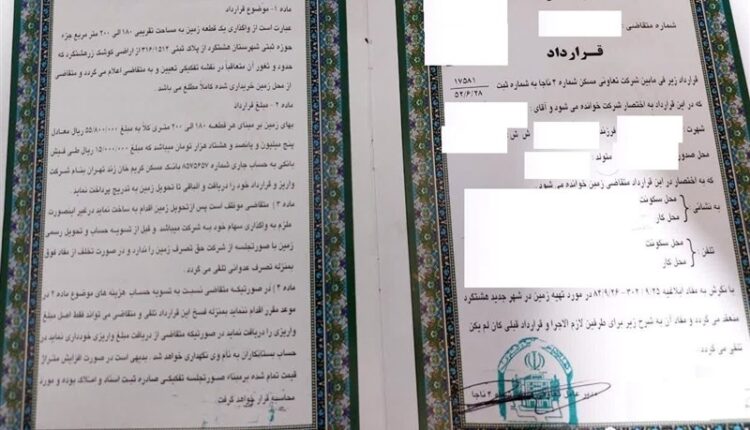 شماره متقاضی :
قرارداد
قرارداد زیر فی مابین شرکت تعاونی مسکن شماره ۲ ناجا به شماره ثبت ۱۷۵۸۱
۵۳/۶/۲۸
که در این قرارداد به اختصار شرکت خوانده می شود و آقای :
شهرت
فرزند
ش ش
محل صدور
متولد :
که به اختصار در این قرارداد متقاضی زمین خوانده می شود
به نشانی :
محل سکونت
محل کار
تلفن :
محل سکونت
محل کار
با نگرش به مفاد ابلاغیه ۹۲۵-۳۰۲-۸۴/۹/۲۶ در مورد تهیه زمین در شهر جدید هشتگرد
منعقد می گردد و مفاد آن به شرح زیر برای طرفین لازم الاجرا و قرارداد قبلی کان لم یکن
تلقی می گردد .
ماده ۱- موضوع قرارداد
عبارت است از واگذاری یک قطعه زمین به مساحت تقریبی ۱۸۰ الی ۲۰۰ متر مربع جزء
حوزه ثبتی شهرستان هشتگرد از پلاک ثبتی ۳۱۶/۱۵۱۳ از اراضی کوشک زرهشتگرد که
حدود و ثغور آن متعاقباً در نقشه تفکیکی تعیین و به متقاضی اعلام می گردد و متقاضی
از محل زمین خریداری شده کاملاً مطلع می باشد .
ماده ۲ - مبلغ قرارداد
بهای زمین بر مبنای هر قطعه ۱۸۰ الی ۲۰۰ متری کلاً به مبلغ ۵۵/۸۰۰/۰۰۰ ریال معادل
پنج میلیون و پانصد و هشتاد هزار تومان میباشد که مبلغ ۱۵/۰۰۰/۰۰۰ ریال طی فیش
بانکی به حساب جاری شماره ۸۵۷۵۶۵۷ بانک مسکن کریم خان زند تهران بنام شرکت
واریز و قرارداد خود را دریافت و الباقی تا تحویل زمین به تدریج پرداخت نماید .
ماده ۳ ) متقاضی موظف است پس ازتحویل زمین اقدام به ساخت نماید درغیر اینصورت
ملزم به واگذاری سهام خود به شرکت میباشد و قبل از تسویه حساب و تحویل رسمی
زمین با صورتجلسه از شرکت حق تصرف زمین را ندارد و در صورت تخلف از مفاد فوق
بمنزله تصرف عدوانی تلقی می گردد .
ماده ۴ ) در صورتیکه متقاضی نسبت به تسویه حساب هزینه های موضوع ماده ۲ در
موعد مقرر اقدام ننماید بمنزله فسخ این قرارداد تلقی و متقاضی می تواند فقط اصل مبلغ
واریزی را دریافت نماید در صورتیکه متقاضی از دریافت مبلغ واریزی خودداری نماید در
حساب بستانکاران به نام وی نگهداری خواهد شد . بدیهی است در صورت افزایش متراژ
قیمت تمام شده برمبناء صورتجلسه تفکیکی صادره ثبت اسناد و املاک بوده و مورد
محاسبه قرار خواهد گرفت .